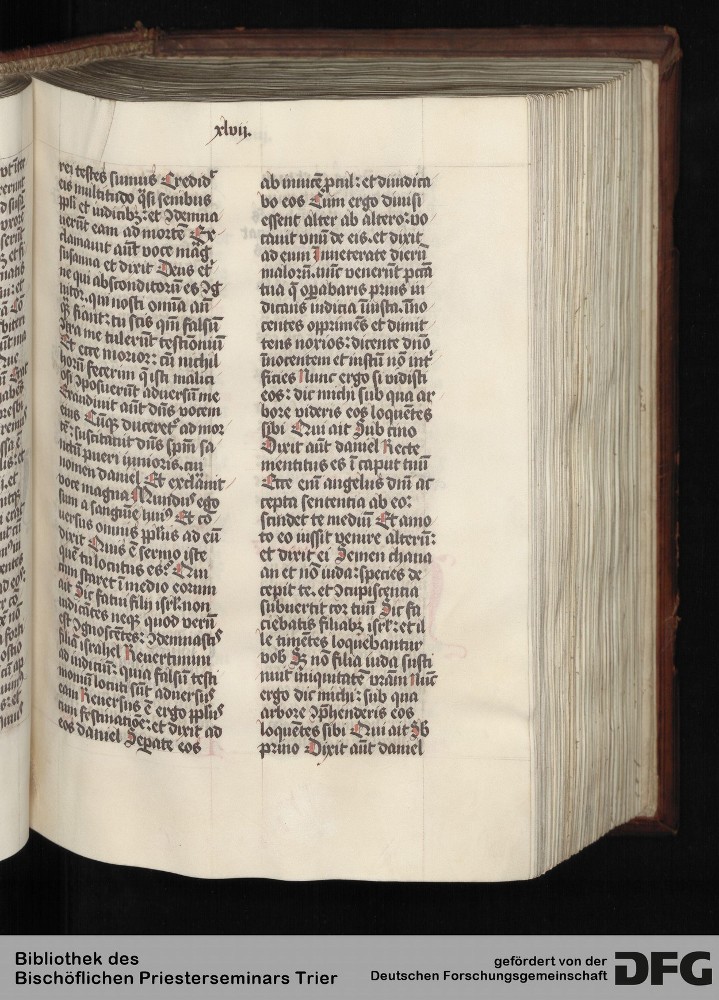 xlvij.
rei testes sumus Credidᵗ
eis multitudo q̄si senibus
ppli et iudicibꝫ: et ꝯdemna
uerūt eam ad mortē Ex
clamauit aūt voce maḡ
susanna et dixit Deus et
ne qui absconditorū es ꝯg
nitor. qui nosti omīa an̄
q̄ fiant: tu scis qm̄ falsū
ꝯtra me tulerūt testīoniū
Et ecce morior: cū nichil
horū fecerim q̄ isti malici
ose ꝯposuerūt aduersū me
Exaudiuit aūt dn̄s vocem
eius Cūqꝫ duceretᵉ ad mor
tē: suscitauit dn̄s spm̄ sa
nctū pueri iunioris. cui
nomen daniel Et exclāuit
voce magna Mundusˀ ego
sum a sangīne huiꝰ Et cō
uersus omnis ppl̄us ad eū
dixit Quis ē sermo iste
quē tu locutus es: Qui
cum staret ī medio eorum
ait Sic fatui filij isrl̄: non
iudicātes neqꝫ quod verū
est ꝯgnoscētes: ꝯdemnastisˀ
filiā israhel Reuertimini
ad iudiciū: quia falsū testi
moniū locuti sūt aduersusˀ
eam Reuersus ē ergo ppl̄usˀ
cum festinatiōe: et dixit ad
eos daniel Sepate eos
ab inuicē pcul: et diiudica
bo eos Cum ergo diuisi
essent alter ab altero: vo
cauit vnū de eis. et dixit
ad eum Inueterate dierū
malorū. nūc venerūt pctā
tua q̄ opabaris prius iu
dicans iudicia īiusta. īno
centes opprimēs et dimit
tens noxios: dicente dnō
īnocentem et iustū nō intᵉ
ficies Nunc ergo si vidisti
eos: dic michi sub qua ar
bore videris eos loquētes
sibi Qui ait Sub cino
Dixit aūt daniel Recte
mentitus es ī caput tuū
Ecce eni angelus dnī ac
cepta sententia ab eo:
scindet te mediū Et amo
to eo iussit venire alterū:
et dixit ei Semen chana
an et nō iuda: species de
cepit te. et ꝯcupiscentia
subuertit cor tuū Sic fa
ciebatis filiabꝫ isrl̄: et il
le timētes loquebantur
vob Sꝫ nō filia iuda susti
nuit iniquitatē vrām Nūc
ergo dic michi: sub qua
arbore ꝯp̄henderis eos
loquētes sibi Qui ait Sb
prino Dixit aūt daniel
Bibliothek des
Bischöflichen Priesterseminars Trier
gefördert von der
Deutschen Forschungsgemeinschaft
DFG